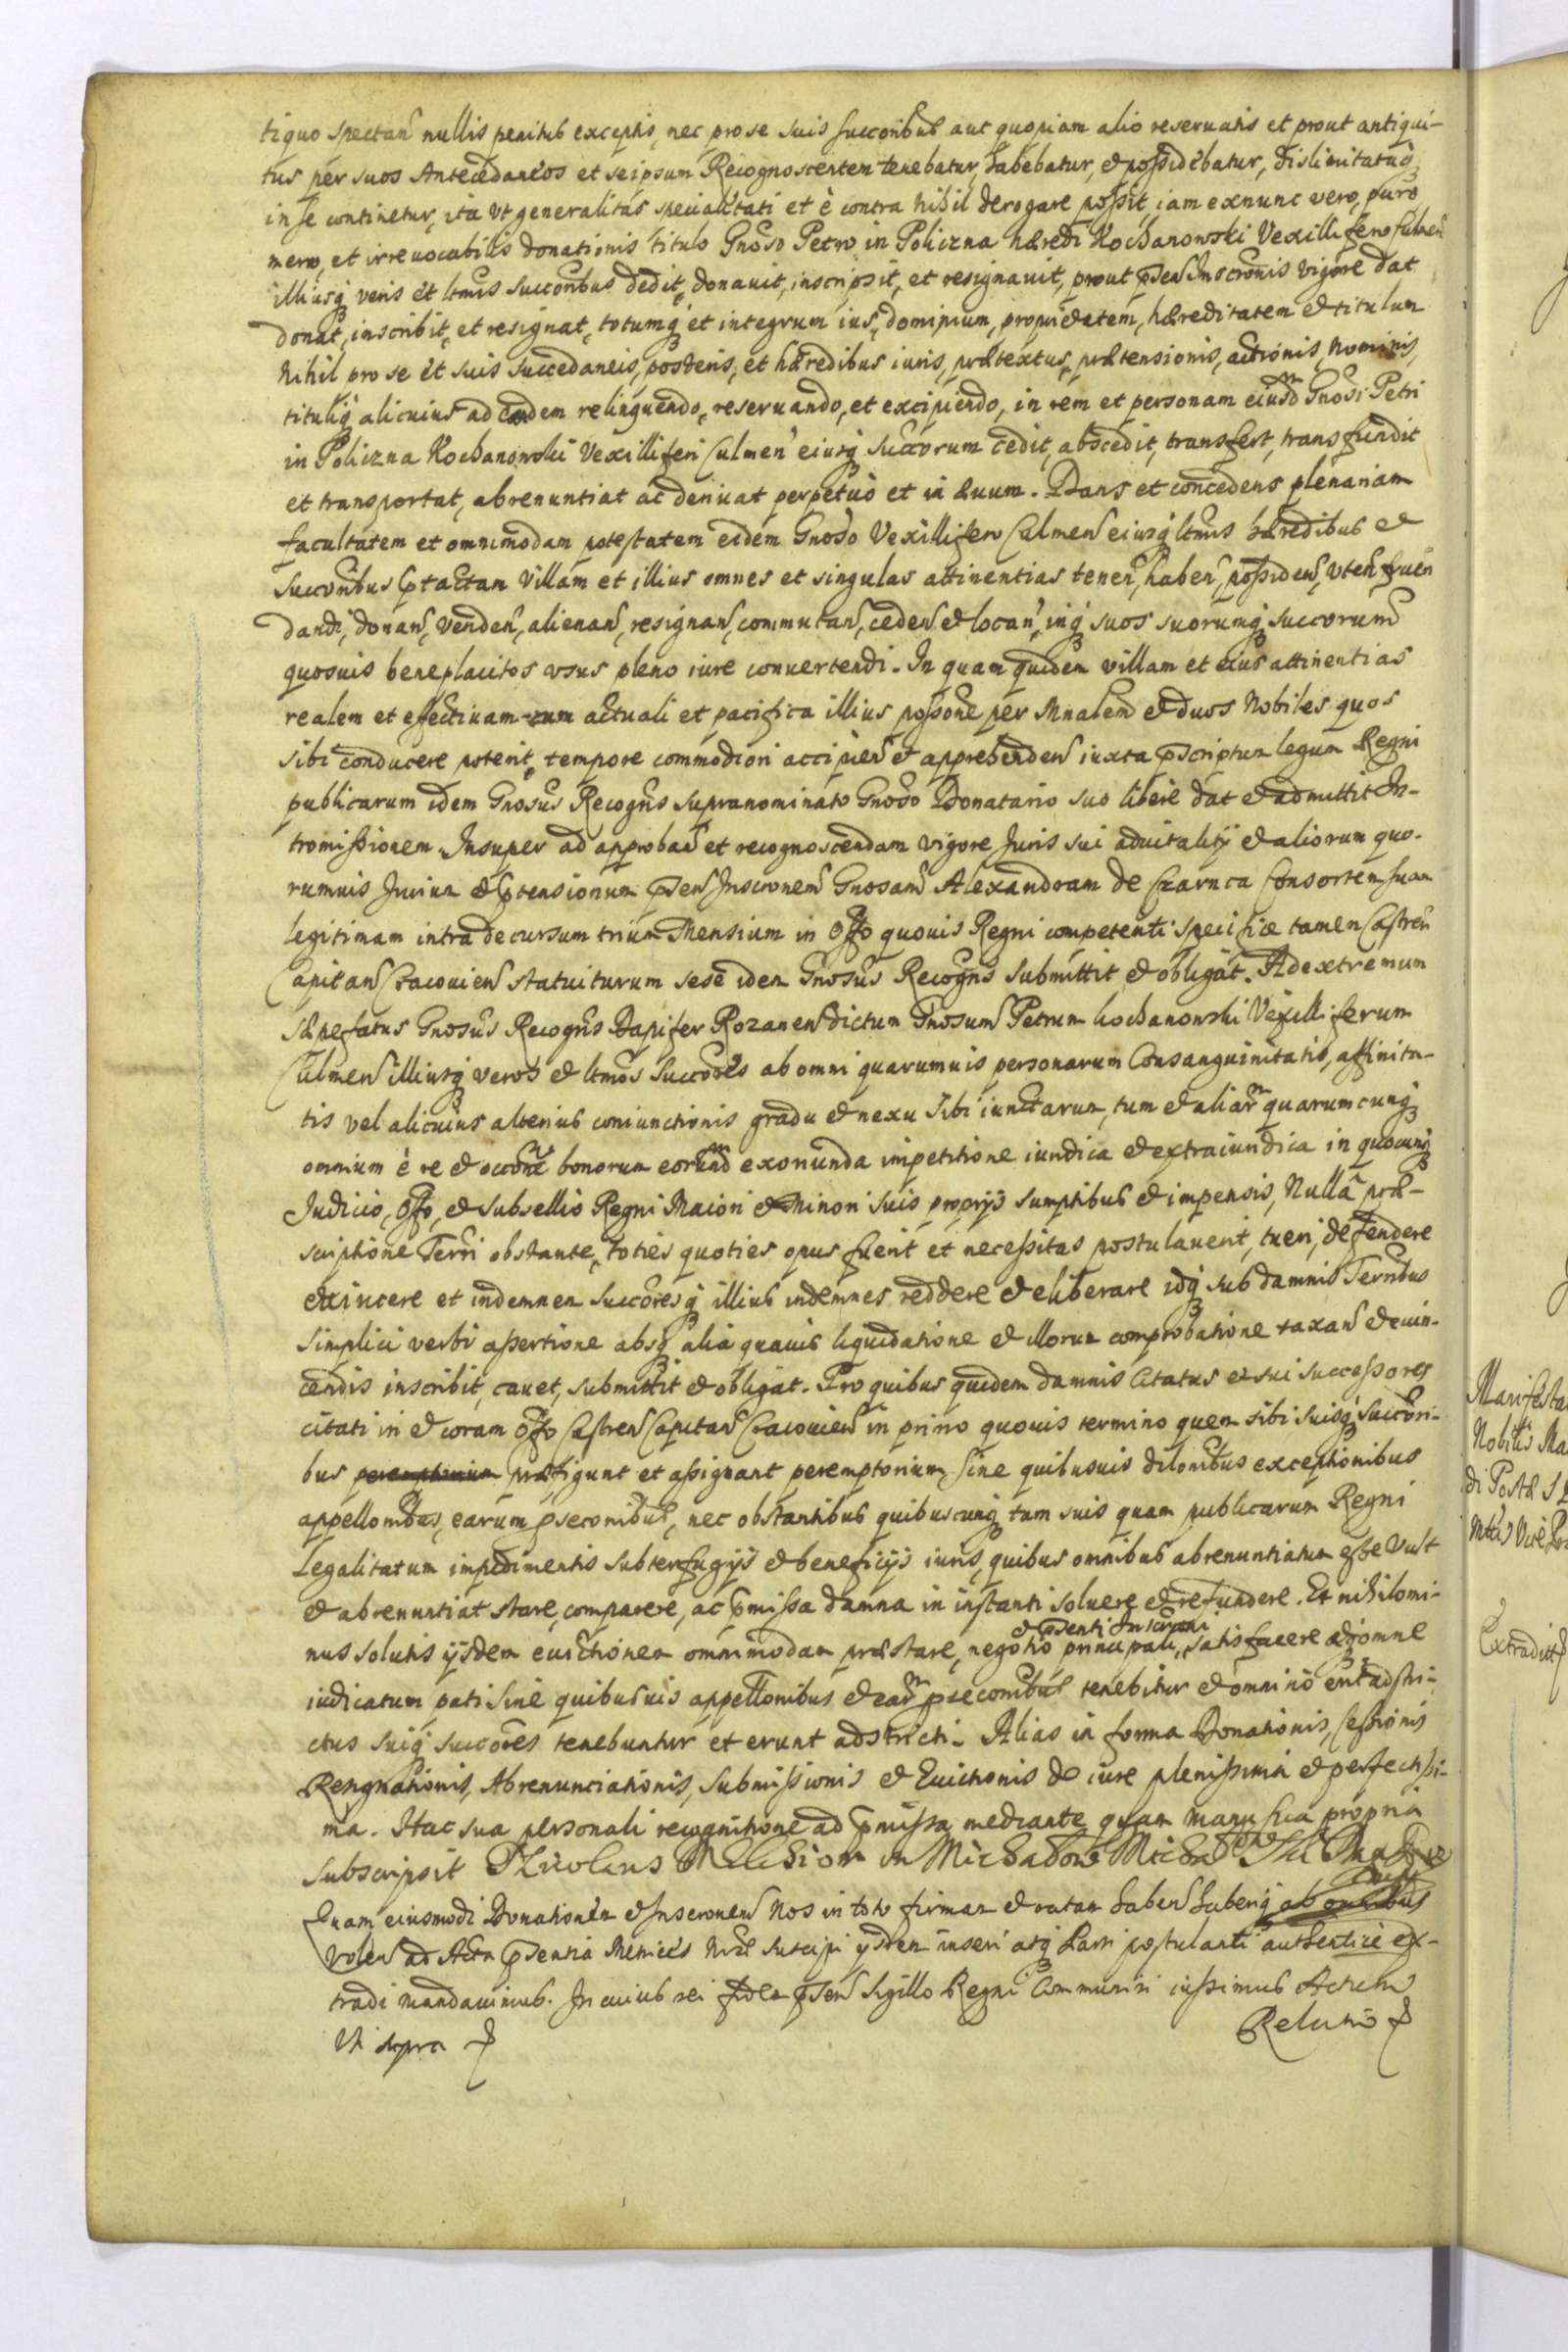 tiquo spectan nullis penitus exceptis, nec pro se suis succoribus aut quopiam alio reseruatis et prout antiqui-
tus per suos Antecedaneos et seipsum Recognoscentem tenebatur, habebatur, et possidebatur, dislimitatuq
in se continetur, ita vt generalitas specialitati et è contra nihil derogare possit, iam exnunc vero, puro
mero, et irreuocabilis donationis titulo Gnoso Petro in Polizna hæredi Kochanowski Vexillifero Culmen
illiusq veris et ltmis succoribus dedit, donauit, inscripsit, et resignauit, prout psen Inscronis vigore dat
donat, inscribit, et resignat, totumq et integrum ius, dominium, proprietatem, hæreditatem et titulum
Nihil pro se et suis succedaneis, posteris, et hæredibus iuris, prætextus, prætensionis, actionis, nominis,
tituliq alicuius ad eandem relinquendo, reseruando, et excipiendo, in rem et personam eiusdm Gnosi Petri
in Polizna Kochanowski Vexilliferi Culmen eiusq succorum cedit, abscedit, transfert, transfundit
et transportat, abrenuntiat ac deriuat perpetuò et in æuum. Dans et concedens plenariam
facultatem et omnimodam potestatem eidem Gnoso Vexillifero Culmen eiusq ltmis hæredibus et
succoribus ptactam villam et illius omnes et singulas attinentias tenen, haben, possiden, vten fruen
dandi, donan, venden, alienan, resignan, commutan, ceden et locan, inq suos suorumq succorum
quosuis beneplacitos vsus pleno iure conuertendi. In quam quidem villam et eius attinentias
realem et effectiuam cum actuali et pacifica illius possone per Mnalem et duos Nobiles quos
sibi conducere poterit, tempore commodiori accipien et apprehenden iuxta pscriptum legum Regni
publicarum idem Gnosus Recogns supranominato Gnoso Donatario suo liberè dat et admittit In-
tromissionem. Insuper ad approban et recognoscendam vigore Juris sui aduitalitij et aliorum quo-
rumuis Jurium et ptensionum psen Inscronem Gnosam Alexandram de Czarnca Consortem suam
legitimam intra decursum trium Mensium in Offo quouis Regni competenti specifice tamen Castren
Capitan Cracouien statuiturum sese idem Gnosus Recogns submittit et obligat. Ad extremum
sæpefatus Gnosus Recogns Dapifer Rozanen dictum Gnosum Petrum Kochanowski Vexilliferum
Culmen illiusq veros et ltmos succores ab omni quarumuis personarum Consanguinitatis, affinita-
tis vel alicuius alterius coniunctionis gradu et nexu sibi iunctarum, tum et aliarm quarumcunq
omnium è re et occone bonorum eorundm exoriunda impetitione iuridica et extraiuridica in quocunq
Judicio, Offo, et subsellio Regni Maiori et Minori suis proprijs sumptibus et impensis, Nulla præ-
scriptione Terri obstante, toties quoties opus fuerit et necessitas postulauerit, tueri, defendere
euincere et indemnem succoresq illius indemnes reddere et eliberare idq sub damnis Terribus
simplici verbi assertione absq alia quauis liquidatione et illorum comprobatione taxan et euin-
cendis inscribit, cauet, submittit et obligat. Pro quibus quidem damnis Citatus et sui successores
citati in et coram Offo Castren Capitan Cracouien in primo quouis termino quem sibi suisq succori-
bus peremptorium præfigunt et assignant peremptorium sine quibusuis dilonibus exceptionibus
appellonibus, earum pseconibus, nec obstantibus quibuscunq tam suis quam publicarum Regni
Legalitatum impedimentis subterfugijs et beneficijs iuris, quibus omnibus abrenuntiatum esse vult
et abrenuntiat stare, comparere, ac pmissa damna in instanti soluere et refundere. Et nihilomi-
et psenti Inscroni
nus solutis ijsdem euictionem omnimodam præstare, negotio principali, satisfacere adq omne
iudicatum pati sine quibusuis appellonibus et earm pseconibus tenebitur et omnino erit adstri-
ctus suiq succores tenebuntur et erunt adstricti. Alias in forma Donationis, Cessionis
Resignationis, Abrenunciationis, Submissionis et Euictionis de iure plenissima et perfectissi-
ma. Hac sua personali recognitione ad pmissa mediante quam manu sua propria
subscripsit
Quam eiusmodi Donationem et Inscronem Nos in toto firmam et ratam haben haberiq ab omnibus
volen ad Acta psentia Metrices Nræ suscipi ijsdem inseri atq Parti postulanti authenticè ex-
tradi mandauimus. In cuius rei fidem psen Sigillo Regni Communiri iussimus Actum
Vt supra
Relatio
Nobilis Ma
di Postæ